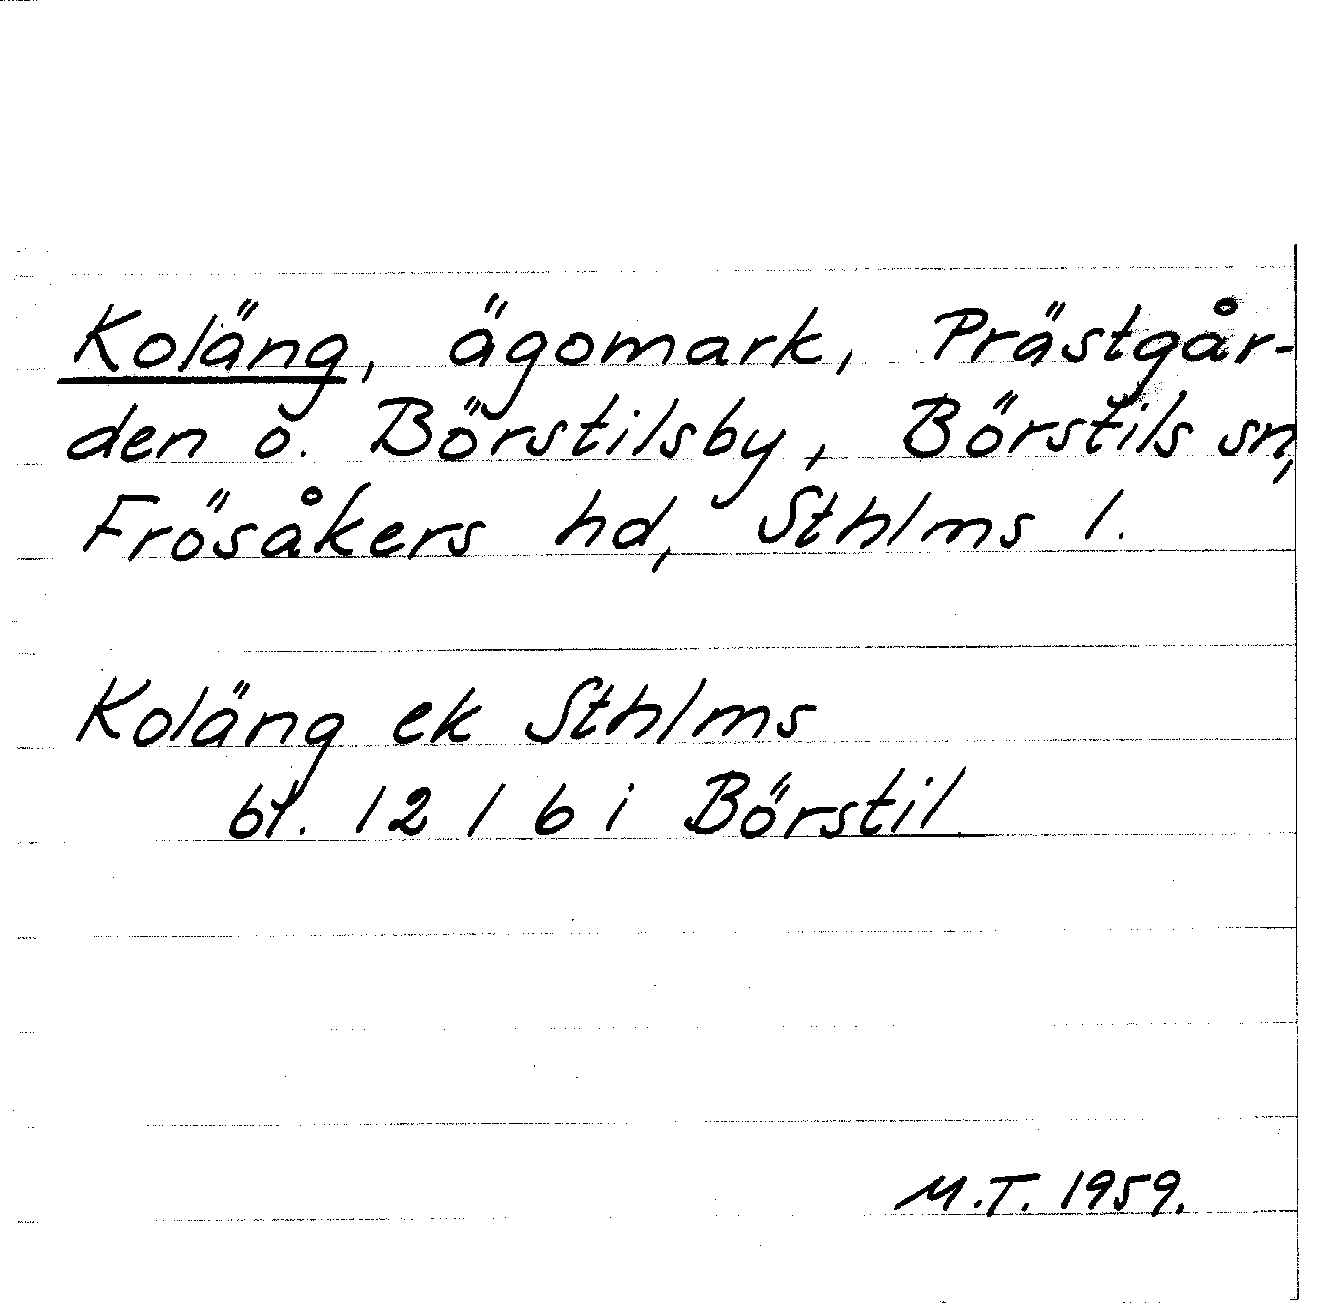 Koläng, ägomark, Prästgår-
den o. Börstilsby, Börstils sn,
Frösåkers hd, Sthlms l.
Koläng ek Sthlms
bl. 12 1 b i Börstil
M.T. 1959.